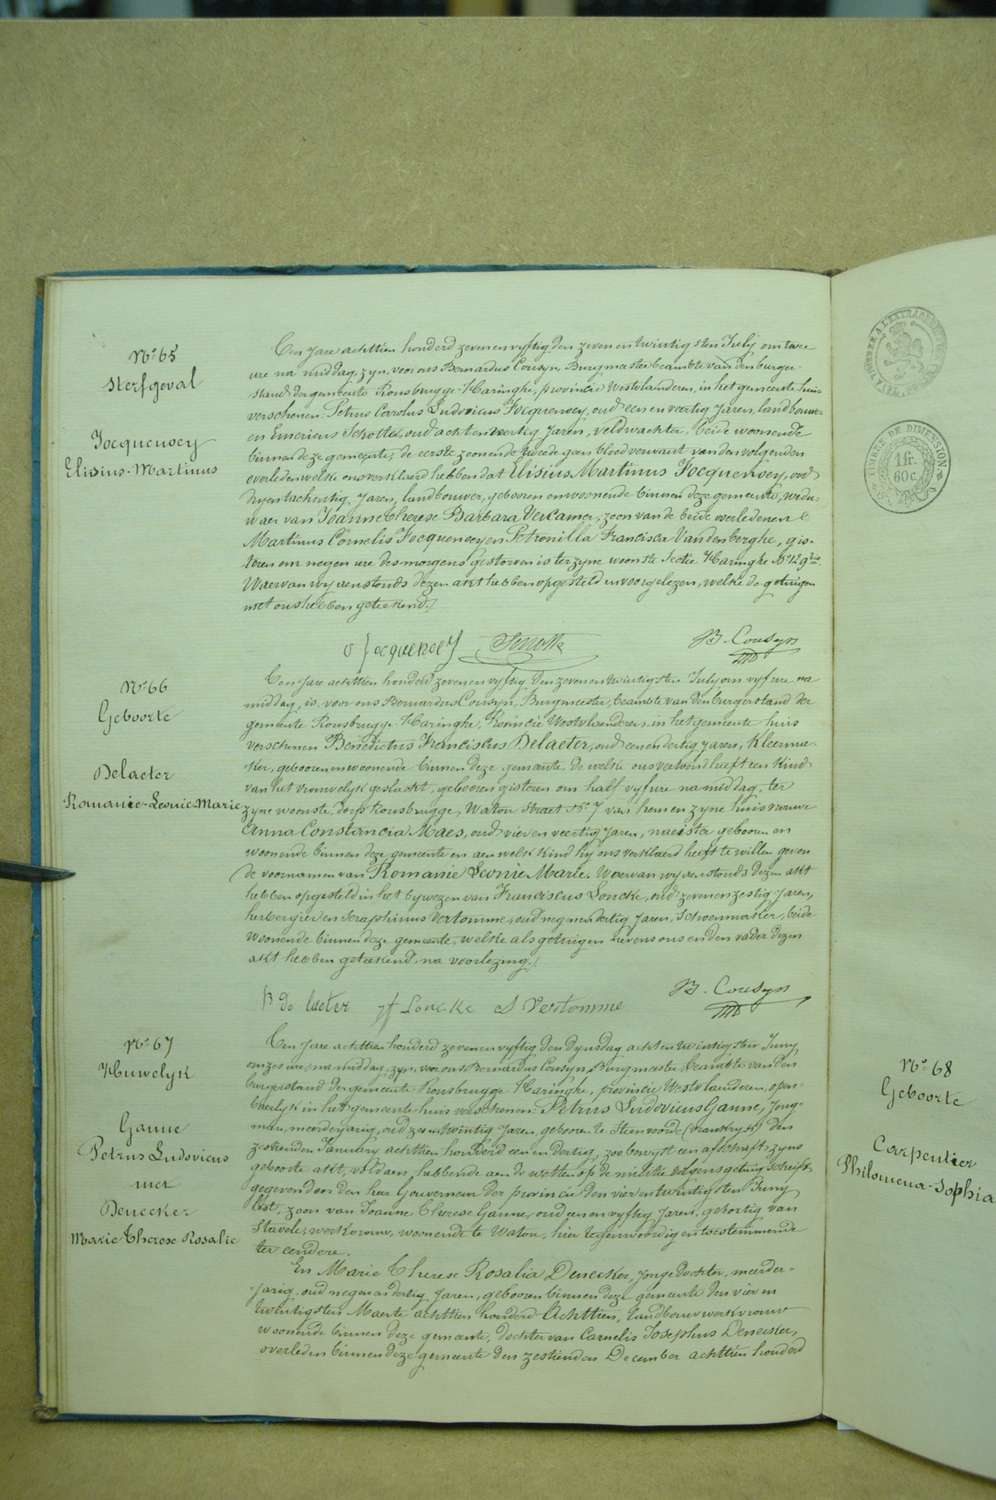 N.o 65
Sterfgeval
Jocquensey
Elisius-Martinus
Een jare achttien honderd zeven en vyftig den zeven en twintigsten July om twee
ure na middag, zyn voor ons Bernardus Cousyn Burgmeester beambte van den burger-
stand der gemeente Rousbrugge-Haringhe, provintie Westvlanderen, in het gemeente huis
verschenen Petrus Carolus Ludovicus Jocquensey, oud een en veertig Jaren, landbouwer
en Emericus Schotte, oud acht en veertig Jaren, veldwachter, beide woonende
binnen deze gemeente, de eerste zoon en de tweede geen bloedverwant van den volgenden
overleden welke ons verklaerd hebben dat Elisius Martinus Jocquensey, oud
dryentachentig Jaren, landbouwer, geboren en woonende binnen deze gemeente, wedu-
waer van Joanne Therese Barbara Vercamer, zoon van de beide overledenen
Martinus Cornelis Jocquensey en Petronilla Francisca Vandenberghe, gis-
teren om negen ure des morgens gestorven is ter zyne woonste Sectie Haringhe N.o 129
Waervan wy verstonds dezen akt hebben opgesteld en voorgelezen, welke de getuigen
met ons hebben geteekend.
Jocquensey Schotte B. Cousyn
N.o 66
Geboorte
Delaeter
Romanie-Leonie Marie
Een jare achttien honderd zeven en vyftig den zeven en twintigsten July om vyf ure na
middag, is voor ons Bernardus Cousyn, Burgmeester, beambte van den burgerstand der
gemeente Rousbrugge Haringhe, Provincie Westvlaenderen, in het gemeente huis
verschenen Benedictus Franciscus Delaeter, oud een en dertig jaren, Kleerma-
ker, geboren en woonende binnen deze gemeente de welke ons vertoond heeft een Kind
van het vrouwelyk geslacht, geboren gisteren om half vyf ure namiddag, ter
zyne woonste, dorp Rousbrugge, Watou Straet N.o 7 van hem en zyne huisvrouwe
Anna Constancia Maes, oud vier en veertig Jaren, naeister geboren en
woonende binnen deze gemeente en aen welk Kind hy ons verklaerd heeft te willen geven
de voornamen van Romanie Leonie Marie. Waervan wy verstonds dezen akt
hebben opgesteld in het bywezen van Franciscus Loncke, oud zeven en zestig Jaren,
herbergier en Seraphinus Vertomme, oud negen en dertig Jaren, Schoenmaker, beide
woonende binnen deze gemeente, welke als getuigen nevens ons en den vader dezen
akt hebben geteekend, na voorlezing.
B de laeter ff Loncke S Vertomme B. Cousyn
N.o 67
Huwelyk
Ganne
Petrus Ludovicus
met
Denecker
Marie Therese Rosalie
Een jare achttien honderd zeven en vyftig den Dynsdag acht en twintigsten July,
om zes ure, na middag, zyn voor ons Bernardus Cousyn, Burgmeester beambte van den
burgerstand der gemeente Rousbrugge Haringhe, provincie Westvlanderen, open-
baerlyk in het gemeente huis verschenen Petrus Ludovicus Ganne, Jong-
man, meerderjarig, oud zes en twintig Jaren, geboren te Steenvoorde (Frankryk) den
zestienden January achttien honderd een en dertig, zoo bewyst een afschrift zyns
geboorte akt, voldaen hebbende aen de wetten op de militie volgens getuig schrift
gegeven door den heer Gouverneur der provincie den vier en twintigsten Juny
lest, zoon van Joanne Therese Ganne, oud een en vyftig Jaren, geboortig van
Stavele, werkvrouw, woonende te Watou, hier tegenwoordig en toestemmende
ter eendere.
En Marie Therese Rosalia Denecker, Jonge dochter, meerder-
jarig, oud negen en dertig Jaren, geboren binnen deze gemeente den vier en
twintigsten Maerte achttien honderd Achttien, landbouwwerkvrouw
woonende binnen deze gemeente, dochter van Carnelis Josephus Denecker,
overleden binnen deze gemeente den zestienden December achttien honderd
TIMBRE DE DIMENSION
1 fr.
60 c.
N.o 68
Geboorte
Carpentier
Philomena-Sophia